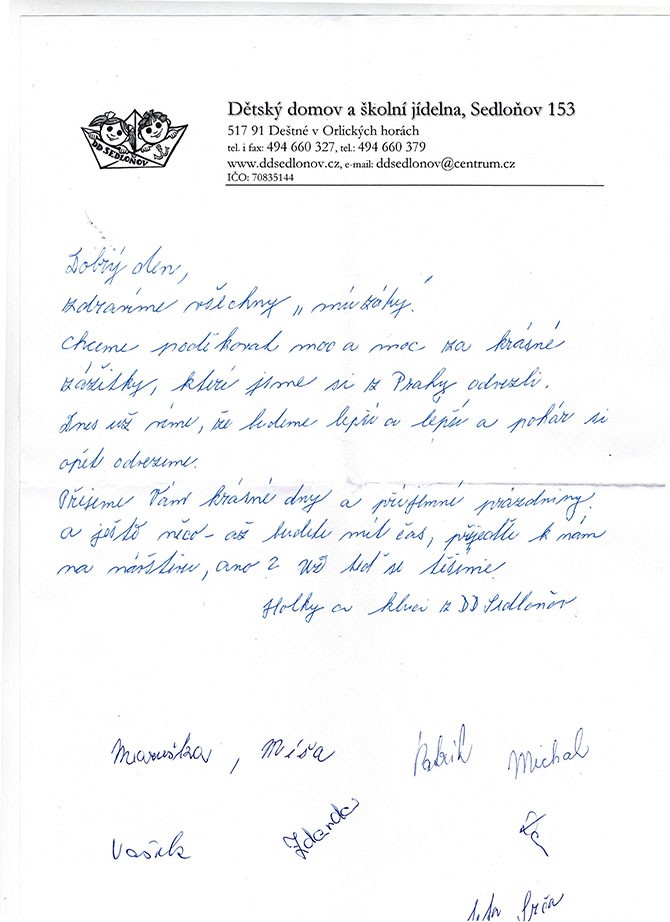 DD SEDLOŇOV
Dětský domov a školní jídelna, Sedloňov 153
517 91 Deštné v Orlických horách
tel. i fax: 494 660 327, tel.: 494 660 379
www.ddsedlonov.cz, e-mail: ddsedlonov@centrum.cz
IČO: 70835144
Dobrý den,
zdravíme všechny „múzáky“.
Chceme poděkovat moc a moc za krásné
zážitky, které jsme si z Prahy odvezli.
Dnes už víme, že budeme lepší a lepší a pohár si
opět odvezeme.
Přejeme Vám krásné dny a příjemné prázdniny.
a ještě něco – až budete mít čas, přijeďte k nám
na návštěvu, ano? Už teď se těšíme.
Holky a kluci z DD Sedloňov.
Maruška, Míša Patrik Michal
Vašek Zdenda